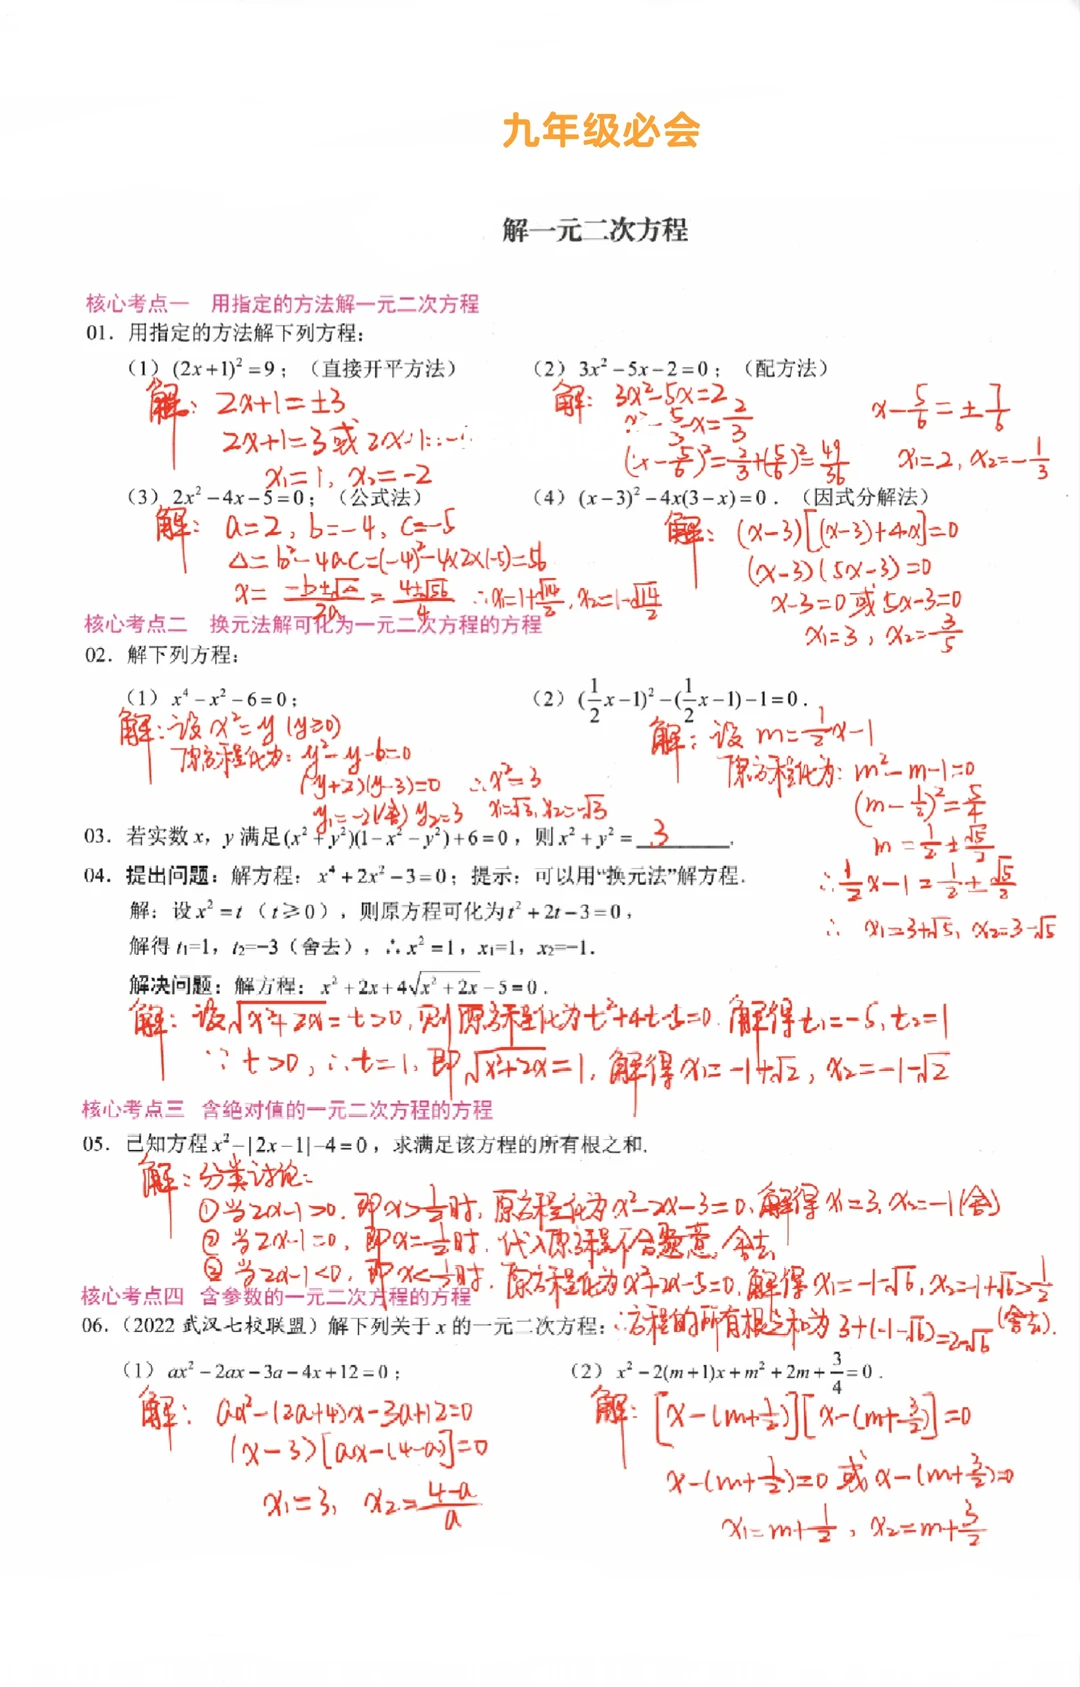 九年级必会
解一元二次方程
核心考点一 用指定的方法解一元二次方程
01. 用指定的方法解下列方程：
(1) (2x+1)²=9；（直接开平方法） (2) 3x²-5x-2=0；（配方法）
解：2x+1=±3
2x+1=3或2x+1=-
x₁=1, x₂=-2
解：3x²-5x=2
x²-5/3x=2/3
(x-5/6)²=2/3+(5/6)²=49/36
x-5/6=±7/6
x₁=2, x₂=-1/3
(3) 2x²-4x-5=0；（公式法） (4) (x-3)²-4x(3-x)=0．（因式分解法）
解：a=2, b=-4, c=-5
△=b²-4ac=(-4)²-4×2×(-5)=56
x=(-b±√△)/2a=(4±√56)/4 ∴x₁=1+√14/2, x₂=1-√14/2
解：(x-3)[(x-3)+4x]=0
(x-3)(5x-3)=0
x-3=0或5x-3=0
x₁=3, x₂=3/5
核心考点二 换元法解可化为一元二次方程的方程
02. 解下列方程：
(1) x⁴-x²-6=0； (2) (1/2x-1)²-(1/2x-1)-1=0．
解：设x²=y (y≥0)
原方程化为：y²-y-6=0
(y+2)(y-3)=0 ∴x²=3
y₁=-2(舍) y₂=3 x₁=√3, x₂=-√3
解：设m=1/2x-1
原方程化为：m²-m-1=0
(m-1/2)²=5/4
m=1/2±√5/2
∴1/2x-1=1/2±√5/2
∴x₁=3+√5, x₂=3-√5
03. 若实数x，y满足(x²+y²)(1-x²-y²)+6=0，则x²+y²=3．
04. 提出问题：解方程：x⁴+2x²-3=0；提示：可以用“换元法”解方程.
解：设x²=t（t≥0），则原方程可化为t²+2t-3=0，
解得t₁=1，t₂=-3（舍去），∴x²=1，x₁=1，x₂=-1．
解决问题：解方程：x²+2x+4√(x²+2x)-5=0．
解：设√(x²+2x)=t>0, 则原方程化为t²+4t-5=0. 解得t₁=-5, t₂=1
∵t>0, ∴t=1, 即√(x²+2x)=1, 解得x₁=-1+√2, x₂=-1-√2
核心考点三 含绝对值的一元二次方程的方程
05. 已知方程x²-|2x-1|-4=0，求满足该方程的所有根之和.
解：分类讨论：
①当2x-1>0, 即x>1/2时, 原方程化为x²-2x-3=0, 解得x₁=3, x₂=-1(舍)
②当2x-1=0, 即x=1/2时, 代入原方程不合题意, 舍去
③当2x-1<0, 即x<1/2时, 原方程化为x²+2x-5=0, 解得x₁=-1-√6, x₂=-1+√6>1/2
(舍去).
∴方程的所有根之和为3+(-1-√6)=2-√6
核心考点四 含参数的一元二次方程的方程
06.（2022武汉七校联盟）解下列关于x的一元二次方程：
(1) ax²-2ax-3a-4x+12=0； (2) x²-2(m+1)x+m²+2m+3/4=0．
解：ax²-(2a+4)x-3a+12=0
(x-3)[ax-(4-a)]=0
x₁=3, x₂=(4-a)/a
解：[x-(m+1/2)][x-(m+3/2)]=0
x-(m+1/2)=0或x-(m+3/2)=0
x₁=m+1/2, x₂=m+3/2